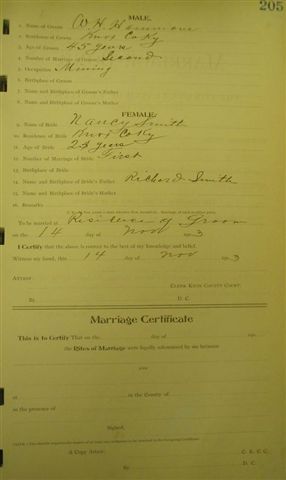 205
MALE.
1. Name of Groom W. H. Hammons
2. Residence of Groom Knox Co Ky
3. Age of Groom 45 years
4. Number of Marriage of Groom Second
5. Occupation Mining
6. Birthplace of Groom
7. Name and Birthplace of Groom's Father
8. Name and Birthplace of Groom's Mother
FEMALE.
9. Name of Bride Nancy Smith
10. Residence of Bride Knox Co Ky
11. Age of Bride 23 years
12. Number of Marriage of Bride First
13. Birthplace of Bride
14. Name and Birthplace of Bride's Father Richard Smith
15. Name and Birthplace of Bride's Mother
16. Remarks
To be married at Residence of Groom
on the 14 day of Nov 190 3
I Certify that the above is correct to the best of my knowledge and belief.
Witness my hand, this 14 day of Nov 190 3
ATTEST:
CLERK KNOX COUNTY COURT.
By D. C.
Marriage Certificate
This is to Certify That on the day of 190
the Rites of Marriage were legally solemnized by me between
and
at in the County of
in the presence of
Signed,
A Copy Attest: C. K. C. C.
By D. C.